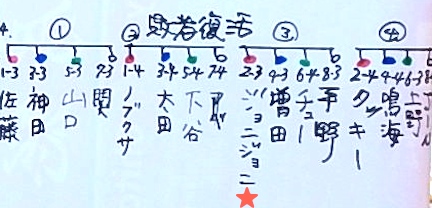 4. 敗者復活
① ② ③ ④
1-3 3-3 5-3 7-3 1-4 3-4 5-4 7-4 2-3 4-3 6-4 8-3 2-4 4-4 6-3
佐藤
神田
山口
関
ノブクサ
太田
下谷
ジョニジョニ
増田
チュー
平野
タッキー
鳴海
上野